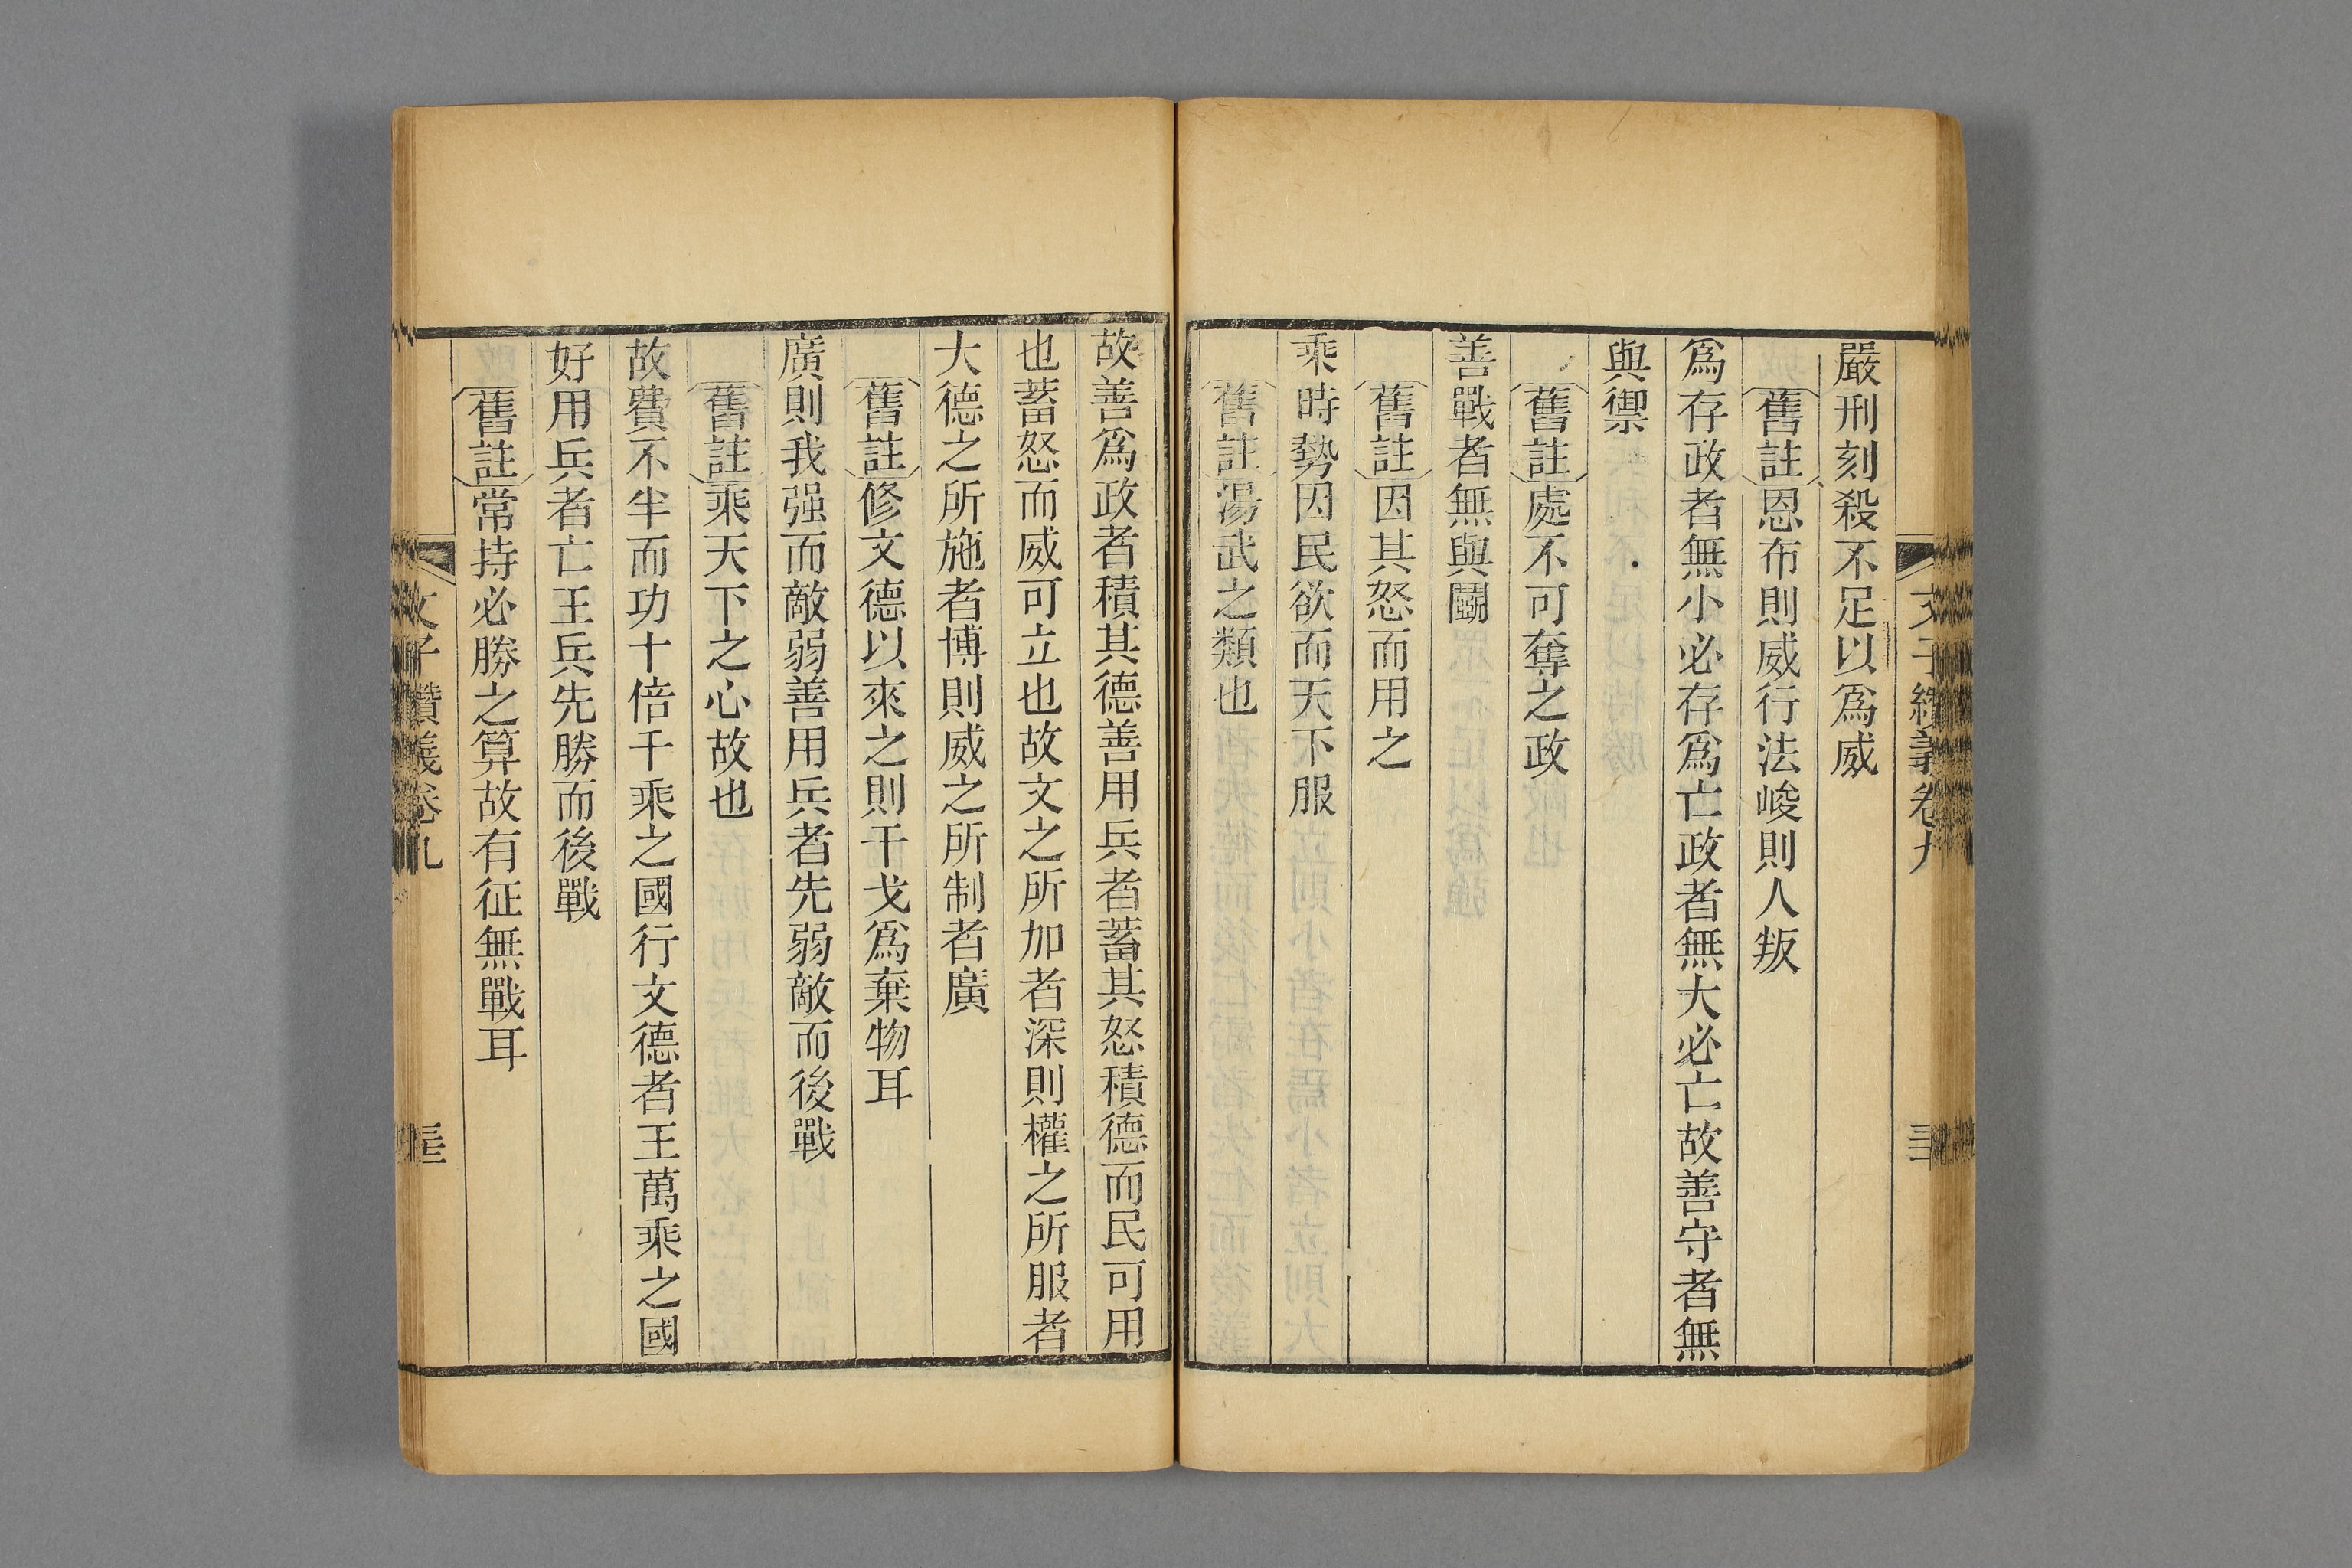 嚴刑刻殺不足以爲威
舊註恩布則威行法峻則人叛
爲存政者無小必存爲亡政者無大必亡故善守者無
與禦
舊註處不可奪之政
善戰者無與鬬
舊註因其怒而用之
乘時勢因民欲而天下服
舊註湯武之類也
故善爲政者積其德善用兵者蓄其怒積德而民可用
也蓄怒而威可立也故文之所加者深則權之所服者
大德之所施者博則威之所制者廣
舊註修文德以來之則干戈爲棄物耳
廣則我强而敵弱善用兵者先弱敵而後戰
舊註乘天下之心故也
故費不半而功十倍千乘之國行文德者王萬乘之國
好用兵者亡王兵先勝而後戰
舊註常持必勝之算故有征無戰耳
文子纘義卷九